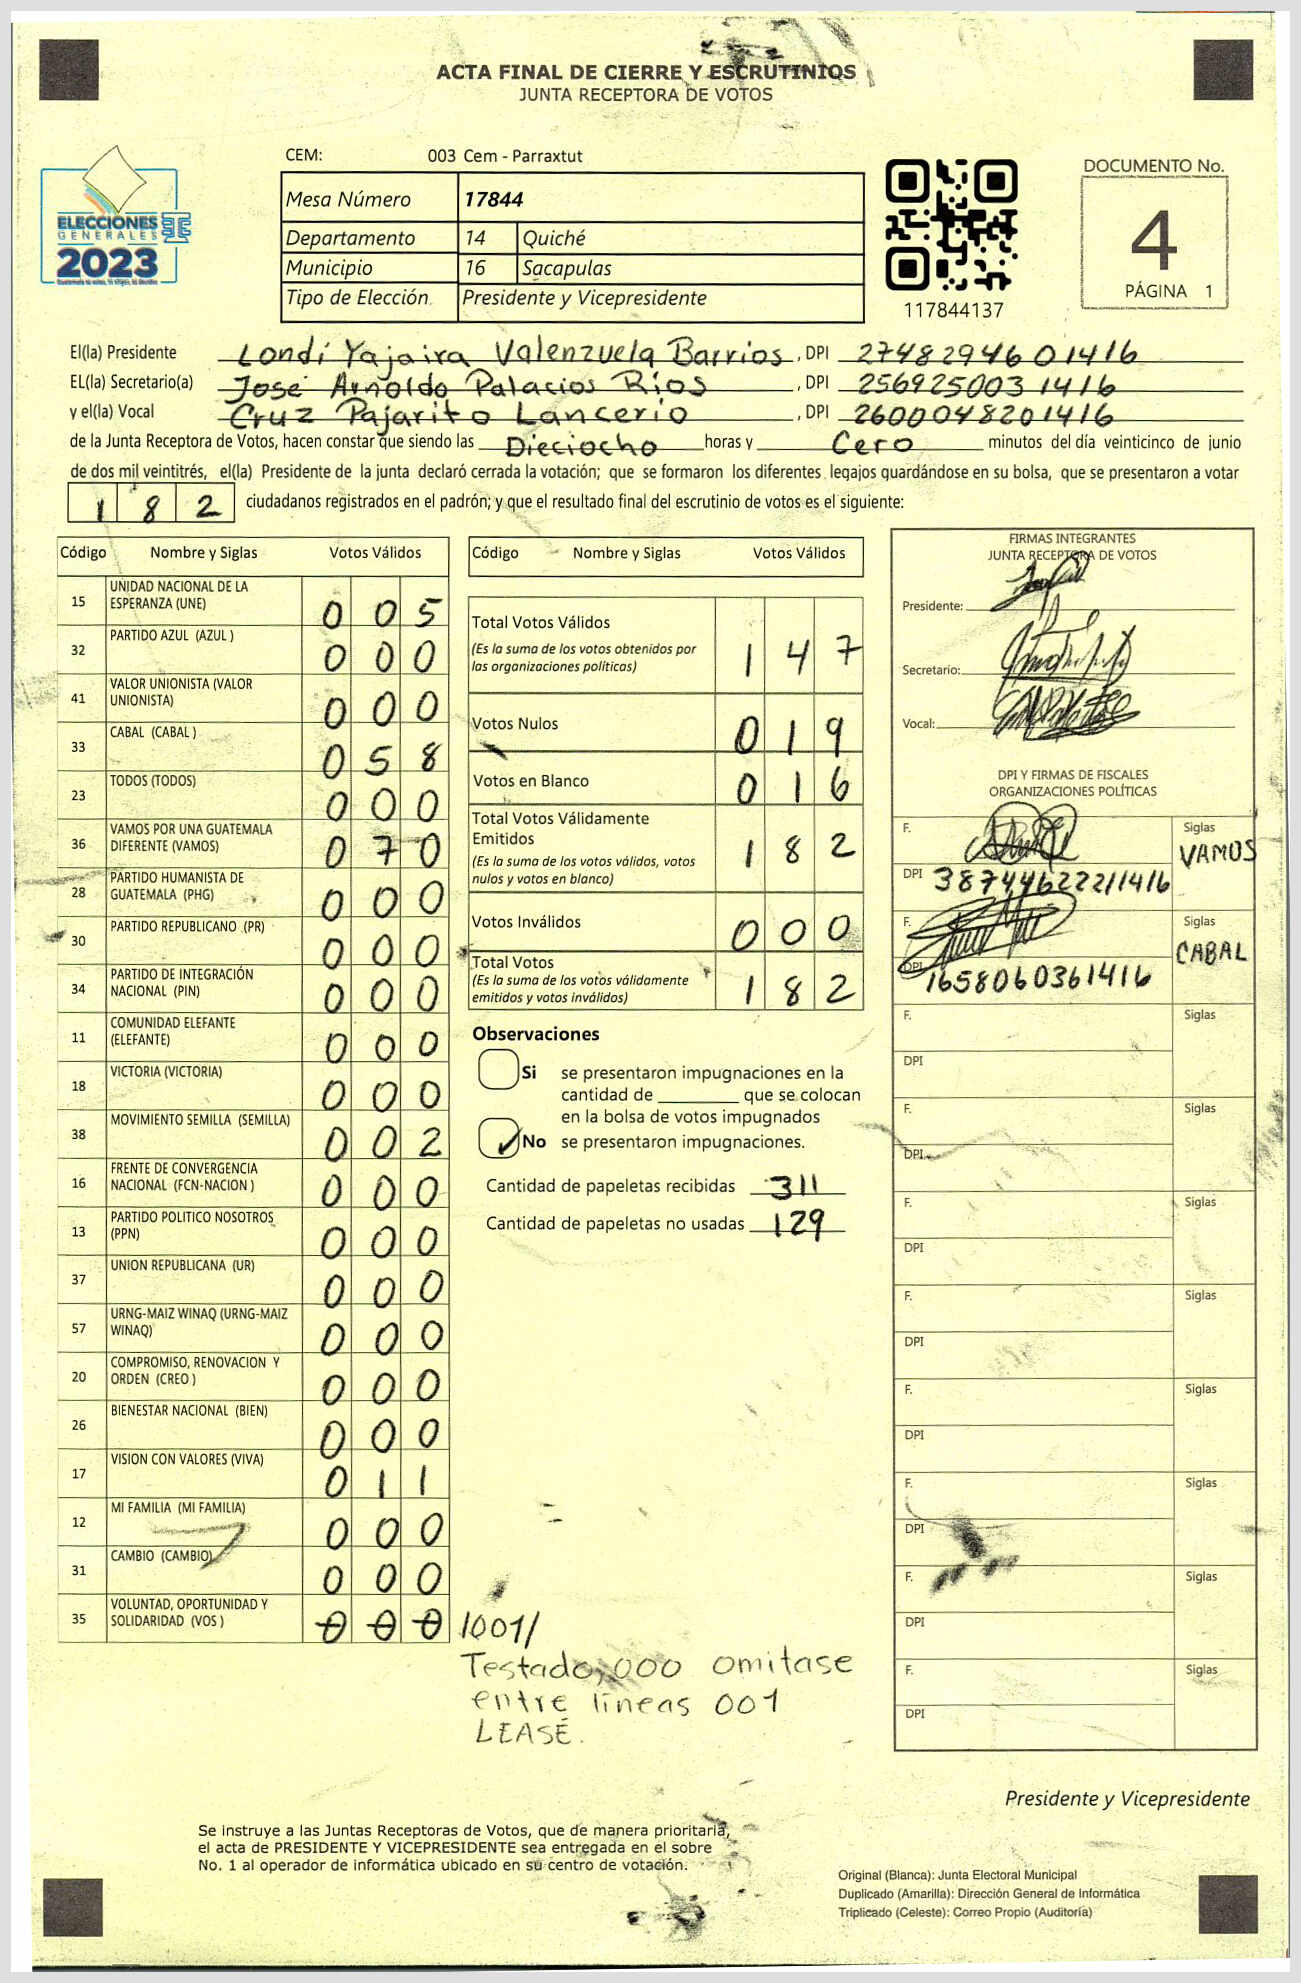 ACTA FINAL DE CIERRE Y ESCRUTINIOS
JUNTA RECEPTORA DE VOTOS
CEM: 003 Cem - Parraxtut
DOCUMENTO No.
4
PÁGINA 1
ELECCIONES
GENERALES
2023
Mesa Número 17844
Departamento 14 Quiché
Municipio 16 Sacapulas
Tipo de Elección Presidente y Vicepresidente
117844137
El(la) Presidente Londi Yajaira Valenzuela Barrios, DPI 2748294601416
EL(la) Secretario(a) José Arnoldo Palacios Ríos, DPI 2569250031416
y el(la) Vocal Cruz Pajarito Lancerio, DPI 2600048201416
de la Junta Receptora de Votos, hacen constar que siendo las Dieciocho horas y Cero minutos del día veinticinco de junio
de dos mil veintitrés, el(la) Presidente de la junta declaró cerrada la votación; que se formaron los diferentes legajos guardándose en su bolsa, que se presentaron a votar
182 ciudadanos registrados en el padrón; y que el resultado final del escrutinio de votos es el siguiente:
Código Nombre y Siglas Votos Válidos
15 UNIDAD NACIONAL DE LA ESPERANZA (UNE) 005
32 PARTIDO AZUL (AZUL ) 000
41 VALOR UNIONISTA (VALOR UNIONISTA) 000
33 CABAL (CABAL ) 058
23 TODOS (TODOS) 000
36 VAMOS POR UNA GUATEMALA DIFERENTE (VAMOS) 070
28 PARTIDO HUMANISTA DE GUATEMALA (PHG) 000
30 PARTIDO REPUBLICANO (PR) 000
34 PARTIDO DE INTEGRACIÓN NACIONAL (PIN) 000
11 COMUNIDAD ELEFANTE (ELEFANTE) 000
18 VICTORIA (VICTORIA) 000
38 MOVIMIENTO SEMILLA (SEMILLA) 002
16 FRENTE DE CONVERGENCIA NACIONAL (FCN-NACION ) 000
13 PARTIDO POLITICO NOSOTROS (PPN) 000
37 UNION REPUBLICANA (UR) 000
57 URNG-MAIZ WINAQ (URNG-MAIZ WINAQ) 000
20 COMPROMISO, RENOVACION Y ORDEN (CREO ) 000
26 BIENESTAR NACIONAL (BIEN) 000
17 VISION CON VALORES (VIVA) 011
12 MI FAMILIA (MI FAMILIA) 000
31 CAMBIO (CAMBIO) 000
35 VOLUNTAD, OPORTUNIDAD Y SOLIDARIDAD (VOS ) 000 /001/
Testado, 000 omitase
entre líneas 001
LEASÉ.
Código Nombre y Siglas Votos Válidos
Total Votos Válidos 147
(Es la suma de los votos obtenidos por
las organizaciones políticas)
Votos Nulos 019
Votos en Blanco 016
Total Votos Válidamente
Emitidos 182
(Es la suma de los votos válidos, votos
nulos y votos en blanco)
Votos Inválidos 000
Total Votos 182
(Es la suma de los votos válidamente
emitidos y votos inválidos)
Observaciones
Si se presentaron impugnaciones en la
cantidad de ________ que se colocan
en la bolsa de votos impugnados
No se presentaron impugnaciones.
Cantidad de papeletas recibidas 311
Cantidad de papeletas no usadas 129
FIRMAS INTEGRANTES
JUNTA RECEPTORA DE VOTOS
Presidente:
Secretario:
Vocal:
DPI Y FIRMAS DE FISCALES
ORGANIZACIONES POLÍTICAS
F. Siglas
VAMOS
DPI 3874462221416
F. Siglas
CABAL
DPI 1658060361416
F. Siglas
DPI
F. Siglas
DPI
F. Siglas
DPI
F. Siglas
DPI
F. Siglas
DPI
F. Siglas
DPI
F. Siglas
DPI
F. Siglas
DPI
Presidente y Vicepresidente
Se instruye a las Juntas Receptoras de Votos, que de manera prioritaria,
el acta de PRESIDENTE Y VICEPRESIDENTE sea entregada en el sobre
No. 1 al operador de informática ubicado en su centro de votación.
Original (Blanca): Junta Electoral Municipal
Duplicado (Amarilla): Dirección General de Informática
Triplicado (Celeste): Correo Propio (Auditoría)